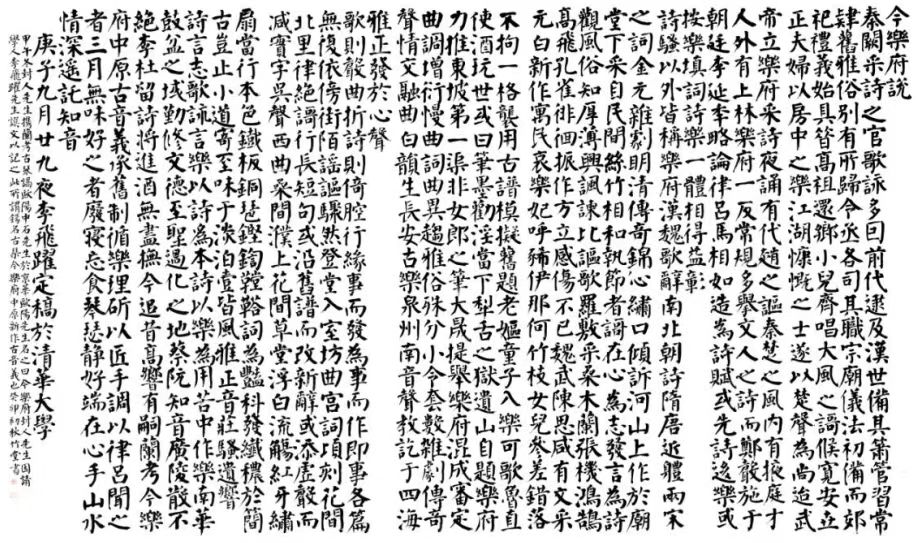 今樂府說
秦闕采詩之官歌詠多因前代逮及漢世備其簫管習常
肄舊雅俗別有所歸令丞各司其職宗廟儀法初備而郊
祀禮義始具昝高祖還鄉小兒齊唱大風之謌候寬安立
正夫婦以房中之樂江湖慷慨之士遂以楚聲為尚迨武
帝立府樂采詩夜誦有代趙之謳秦楚之風內有掖庭才
人外有上林樂府一反常規多舉文人之詩而鄭聲施于
朝廷李延年略論律呂馬相如造為詩賦或先詩迻樂或
按樂填詞詩樂一體相得益彰
詩騷以外皆稱樂府漢魏歌辭南北朝詩隋唐近體兩宋
之詞金元雜劇明清傳奇錦心繡口傾訴河山上作於廟
堂下采自民間絲竹相和執節者謌在心為志發言為詩
觀風俗知厚薄興諷諫比謳歌羅敷采桑木蘭張機鴻鵠
高飛孔雀徘徊振作方立感傷不已魏武陳思咸有文采
元白新作寓民哀樂妃呼豨伊那何竹枝女兒參差錯落
不拘一格襲用古譜模擬舊題老嫗童子入樂可歌魯直
使酒玩世或曰筆墨勸淫當下犁舌之獄遺山自題樂府
力推東坡第一渠非女郎之筆大晟提舉府混成審定
曲調增衍慢曲詞曲異趨雅俗殊分小令套數雜劇傳奇
聲情交融曲白韻生長安古樂泉州南音聲教訖于四海
雅正發於心聲
歌則聲曲折詩則倚腔行緣事而發為事而作即事各篇
無復依傍街陌謡謳驟然登堂入室坊曲宮詞頃刻花間
北里律絕謌行長短句或沿舊譜而改新辭或添虛聲而
減實字吳聲西曲桑間濮上花間草堂浮白流觴紅牙繡
扇當行本色鐵板銅琶鏗鍧鏜鞳詞為豔科發纖穠於簡
古豈止小道寄至味于淡泊豈皆風雅正音莊騷遺響
詩言志歌詠言樂以詩為本詩以樂為用苦中作樂南華
鼓盆之域勤修文德至聖過化之地蔡阮知音廣陵散不
絕李杜留詩將進酒無盡撫今追昔高響有嗣蘭考今樂
府中原古音義承舊制循樂理斫以匠手調以律呂聞之
者三月無味好之者廢寢忘食琴瑟靜好端在心手山水
情深遙託知音
庚子九月廿九夜李飛躍定稿於清華大學
甲午冬封人先生攜蘭考古琴謁歐陽中石先生於京華歐陽先生名之曰今樂府封人先生因請
學人李飛躍先生譔文以記之此所謂錫名古琴今樂府中原新作古音義也癸卯初秋牧堂書